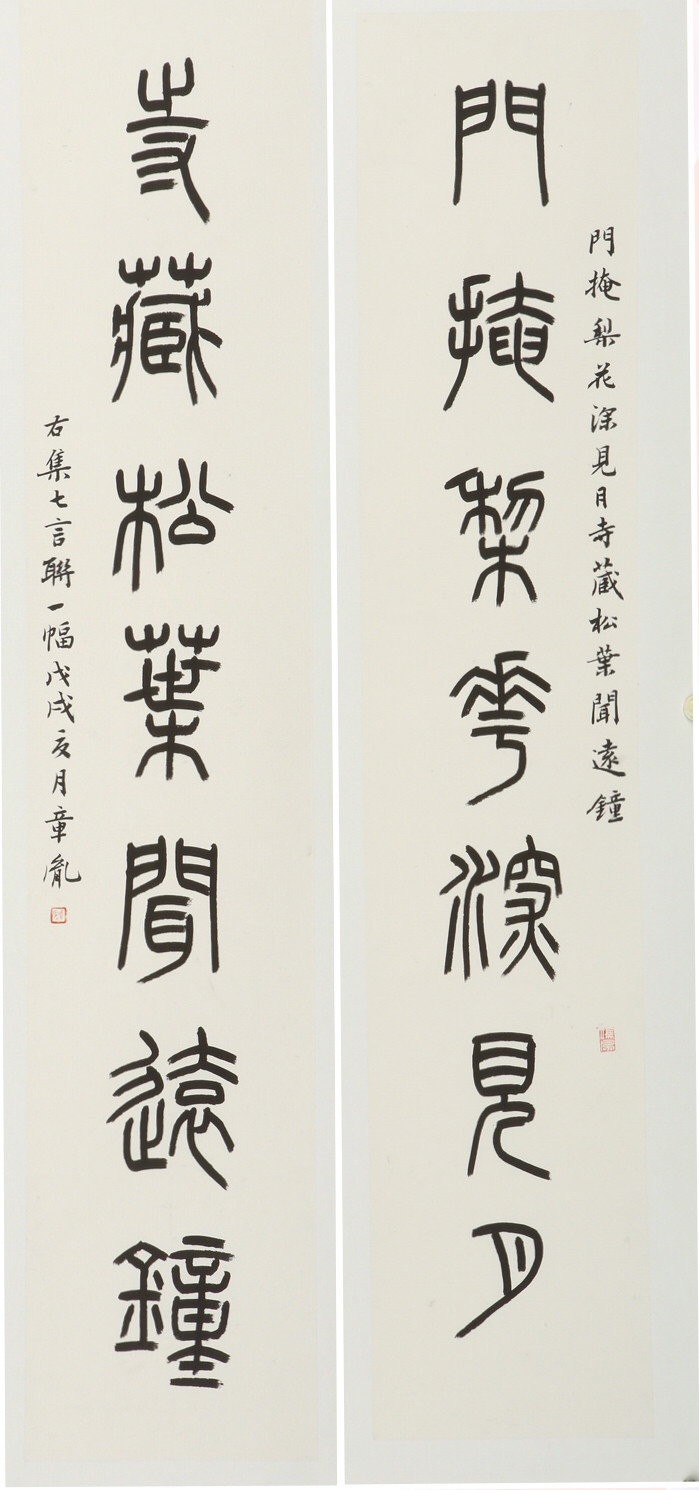 門掩梨花深見月寺藏松葉聞遠鐘
門掩梨花深見月
寺藏松葉聞遠鐘
右集七言聯一幅戊戌亥月章胤